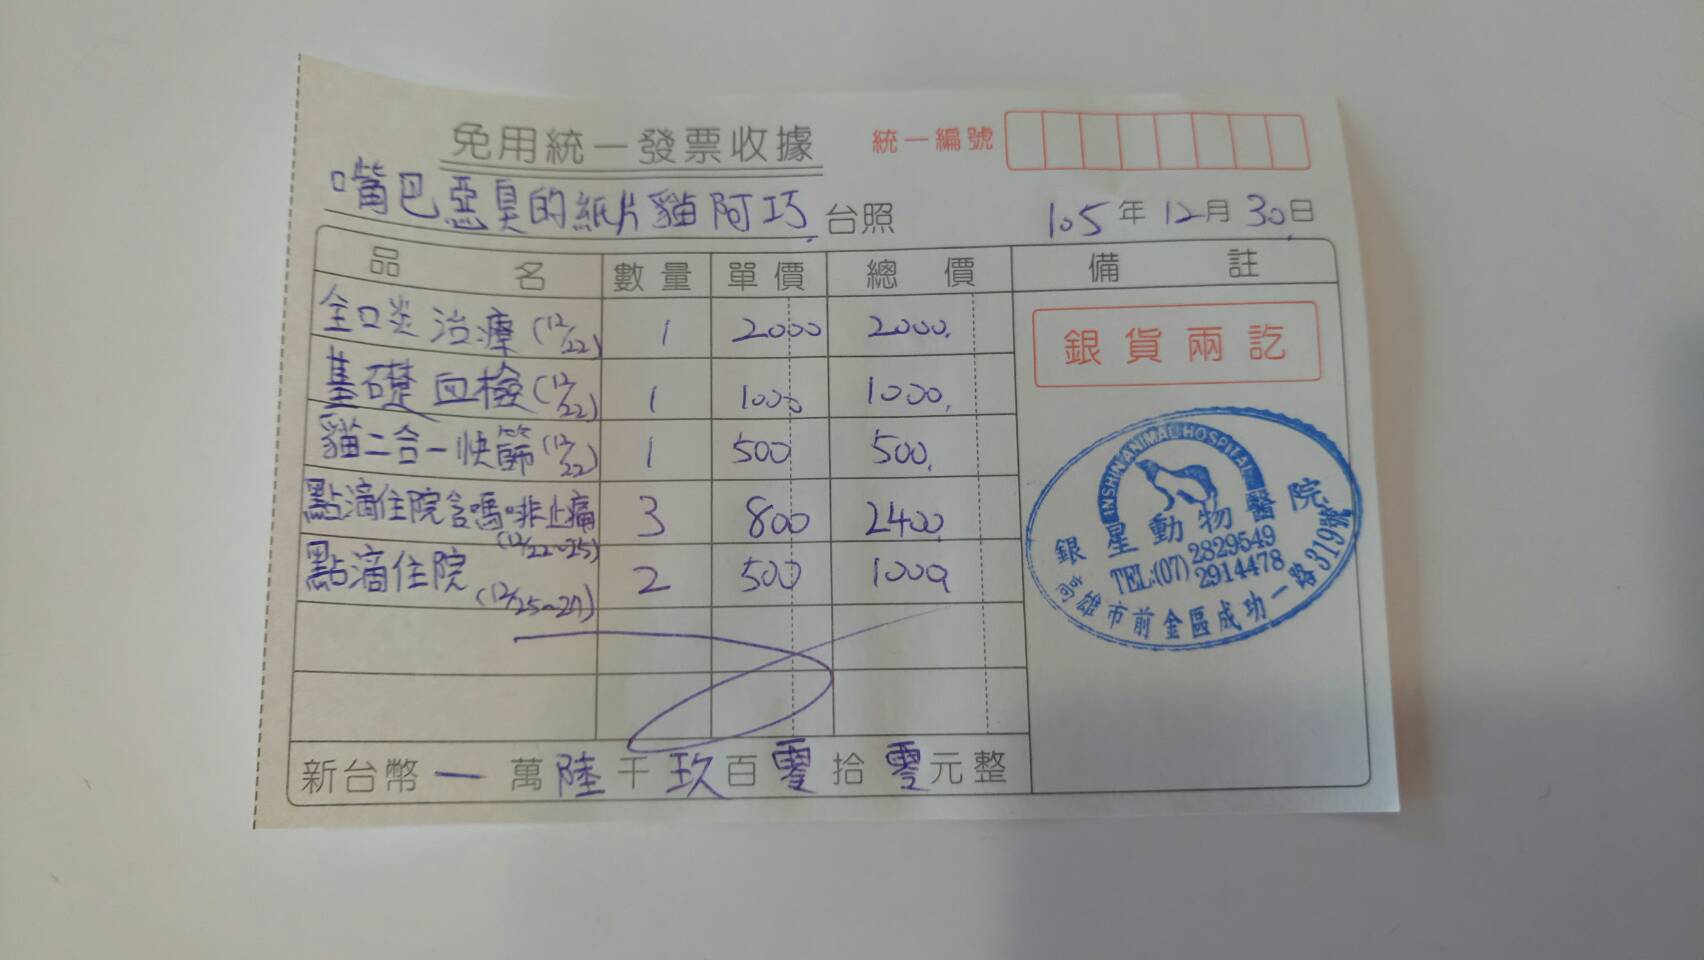 免用統一發票收據
統一編號
嘴巴惡臭的紙片貓阿巧 台照
105年12月30日
品名 數量 單價 總價 備註
全口炎治療(12/22) 1 2000 2000
基礎血檢(12/22) 1 1000 1000
貓二合一快篩(12/22) 1 500 500
點滴住院含嗎啡止痛(12/22~25) 3 800 2400
點滴住院(12/25~27) 2 500 1000
新台幣一萬陸千玖百零拾零元整
銀貨兩訖
INSHIN ANIMAL HOSPITAL
銀星動物醫院
TEL:(07)2829549
2914478
高雄市前金區成功一路319號